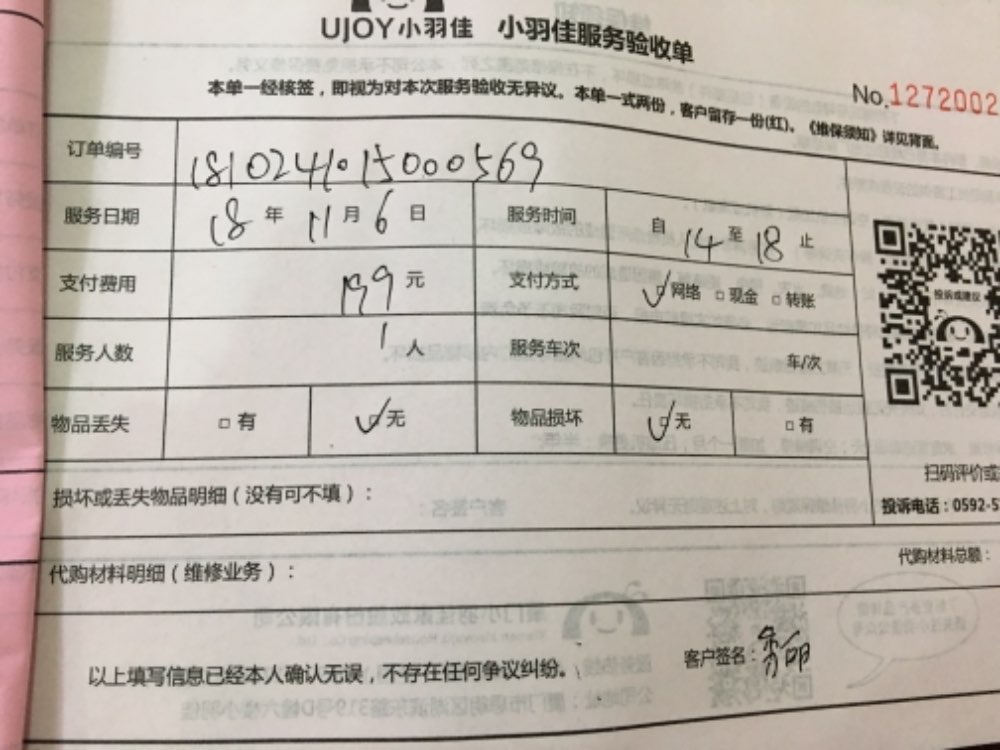 UJOY小羽佳 小羽佳服务验收单
本单一经核签，即视为对本次服务验收无异议。本单一式两份，客户留存一份(红)。《维保须知》详见背面。
No.1272002
订单编号 1810241015000569
服务日期 18 年 11 月 6 日 服务时间 自 14 至 18 止
支付费用 199 元 支付方式 ✓网络 □ 现金 □ 转账
服务人数 1 人 服务车次 车/次
物品丢失 □ 有 ✓无 物品损坏 ✓无 □ 有
投诉或建议
扫码评价或
损坏或丢失物品明细（没有可不填）：
投诉电话：0592-5
代购材料明细（维修业务）： 代购材料总额：
以上填写信息已经本人确认无误，不存在任何争议纠纷。 客户签名：